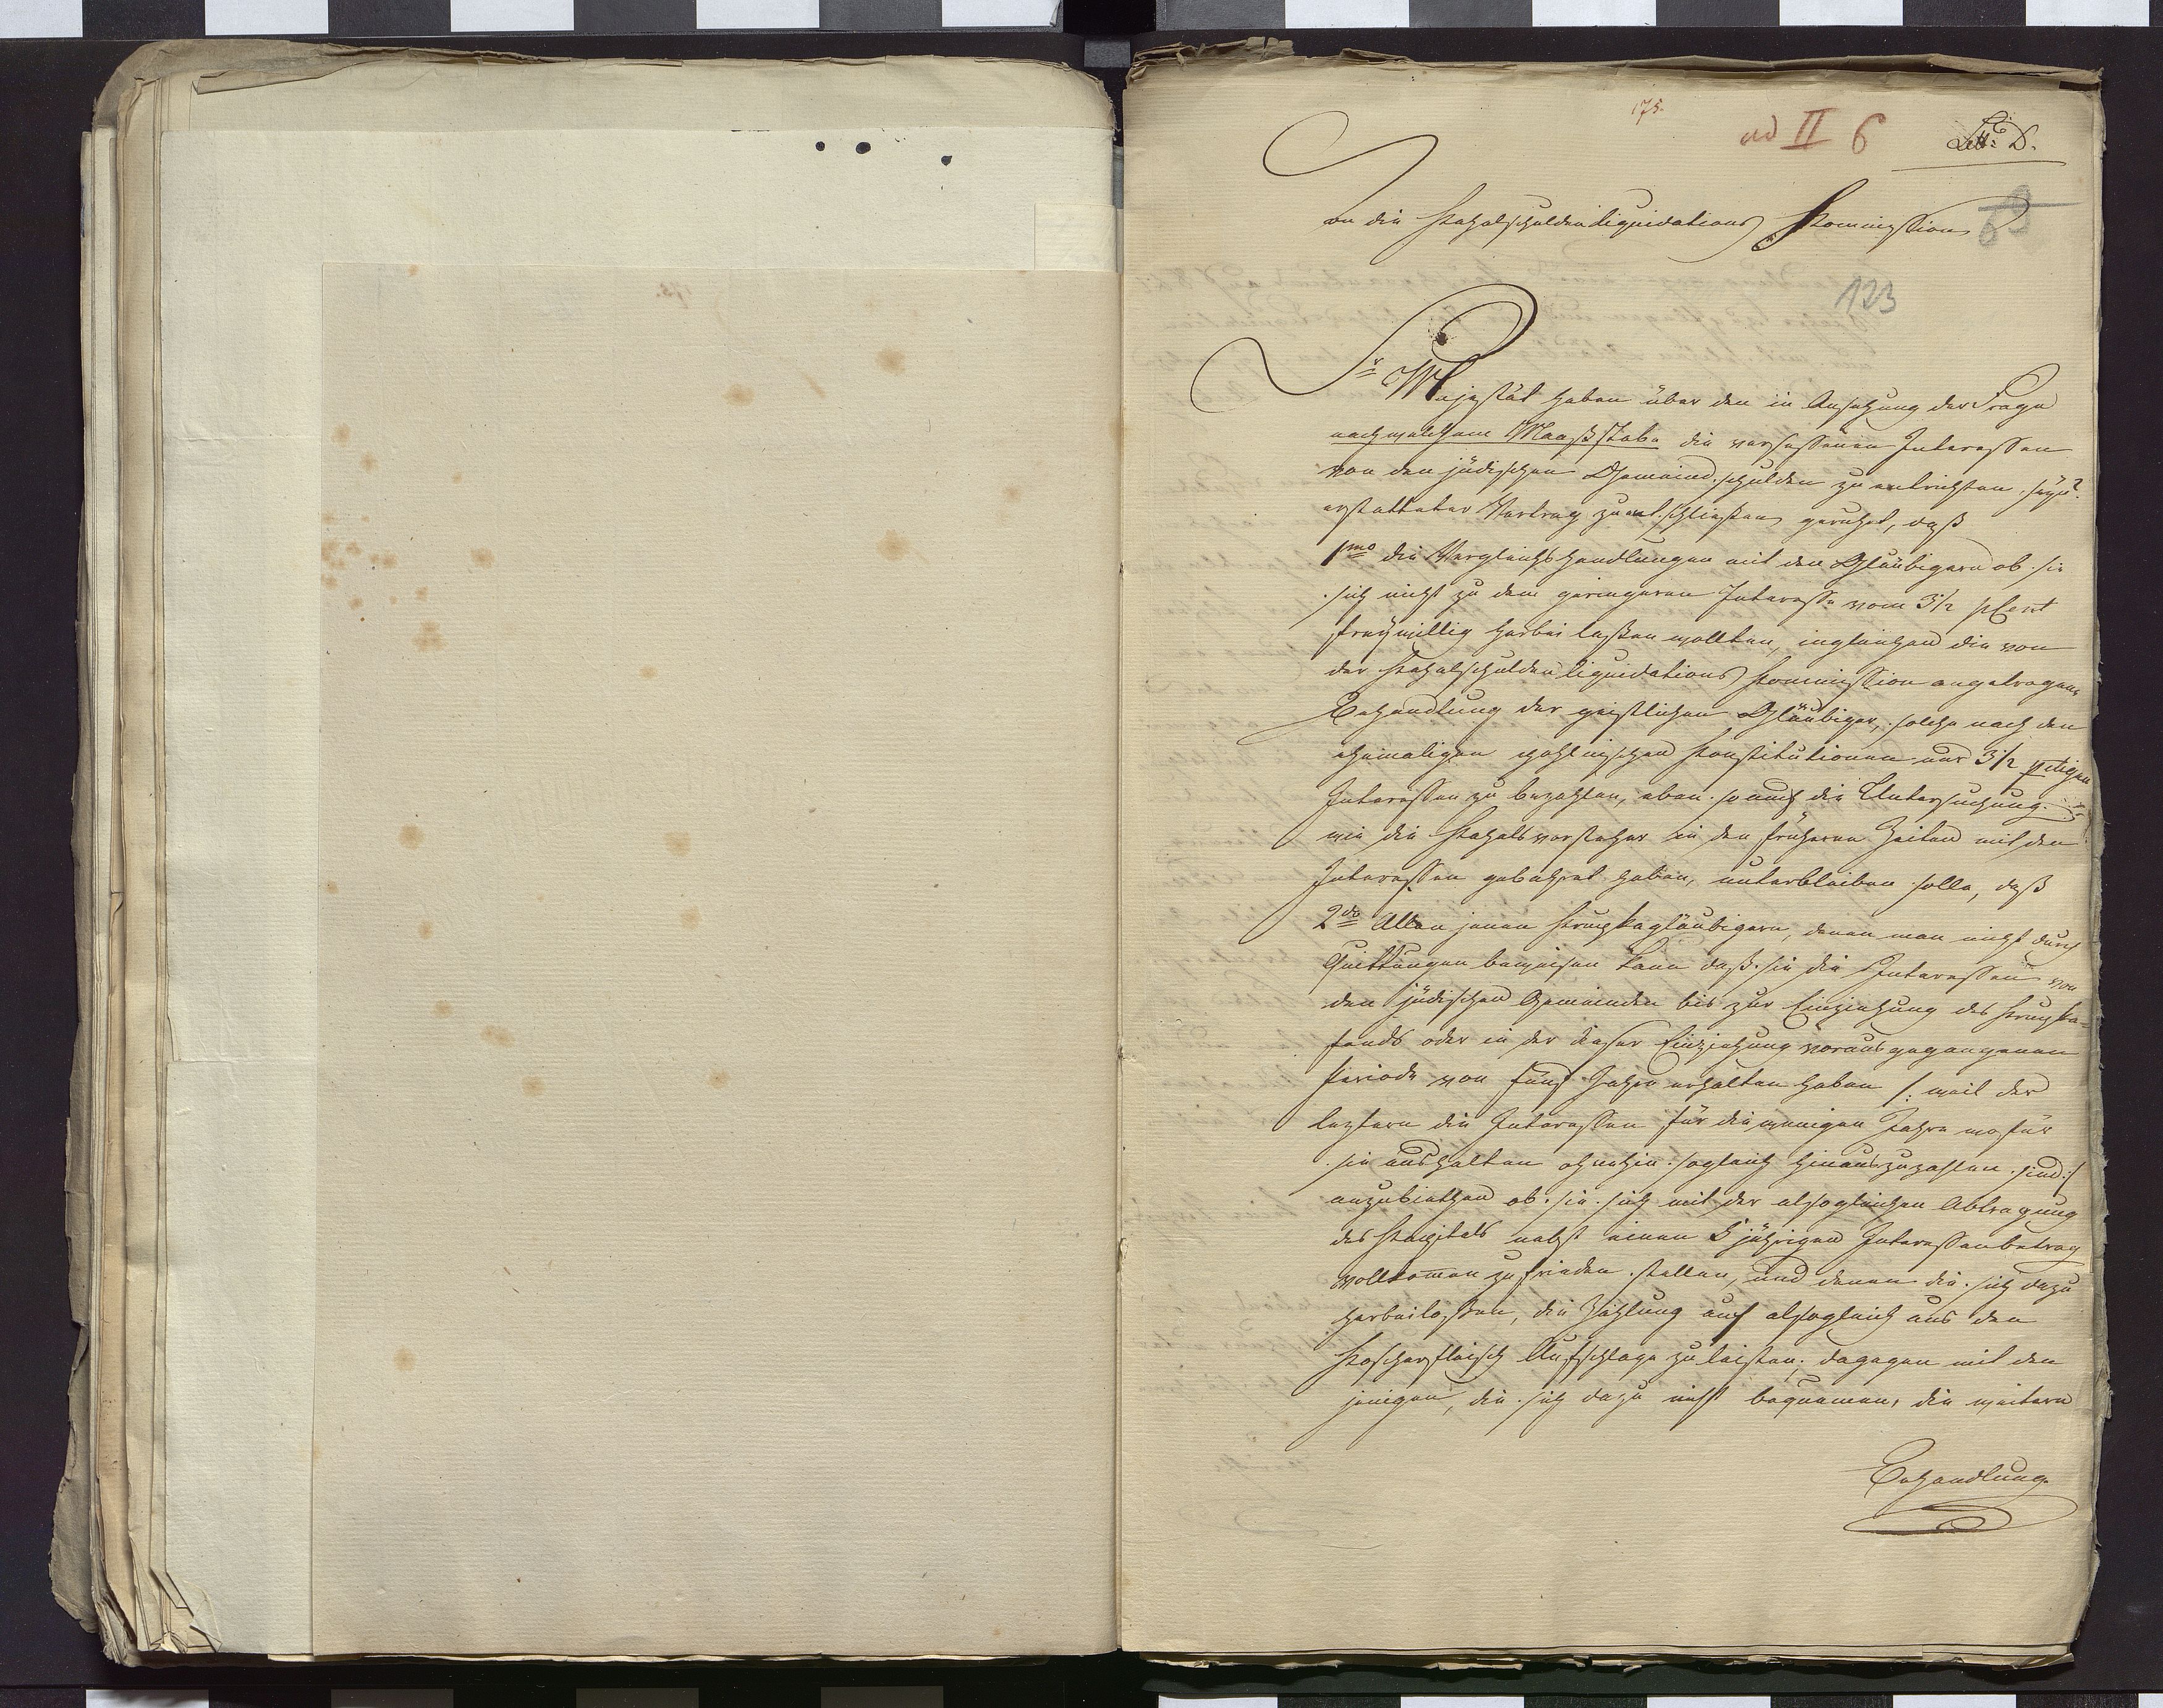 175.
ad II 6
Litt: D.
An die Kahalschuldenliquidations Kommission
63
123
Sr Majestät haben über den in Ansehung der Frage
nach welchem Maaßstabe die versessenen Interessen
von den jüdischen Gemeindschulden zu entrichten seyn?
erstatteten Vortrag zu entschließen geruhet, daß
1mo die Vergleichshandlungen mit den Gläubigern ob sie
sich nicht zu dem geringeren Interesse vom 3 1/2 pCent
freywillig herbei lassen wollten, ingleichen die von
der Kahalschuldenliquidations Kommission angetragene
Behandlung der geistlichen Gläubiger, solche nach den
ehemaligen pohlnischen Konstitutionen nur 3 1/2 pctigen
Interessen zu bezahlen, eben so auch die Untersuchung
wie die Kahalsvorsteher in den früheren Zeiten mit den
Interessen gebahret haben, unterbleiben solle, daß
2do Allen jenen Krupkagläubigern, denen man nicht durch
Quittungen beweisen kann daß sie die Interessen von
den jüdischen Gemeinden bis zur Einziehung des Krupka-
fonds oder in der dieser Einziehung vorausgegangenen
Periode von fünf Jahren erhalten haben /: weil der
leztern die Interessen für die wenigen Jahre wofür
sie aushalten ohnehin sogleich hinauszuzahlen sind :/
anzubiethen ob sie sich mit der alsogleichen Abtragung
des Kapitals nebst einen 5 jährigen Interessenbetrag
vollkommen zufrieden stellen, und denen die sich dazu
herbeilassen, die Zahlung auch alsogleich aus dem
Koscherfleisch Aufschlage zu leisten; dagegen mit den
jenigen, die sich dazu nicht bequemen, die weitere
Behandlung